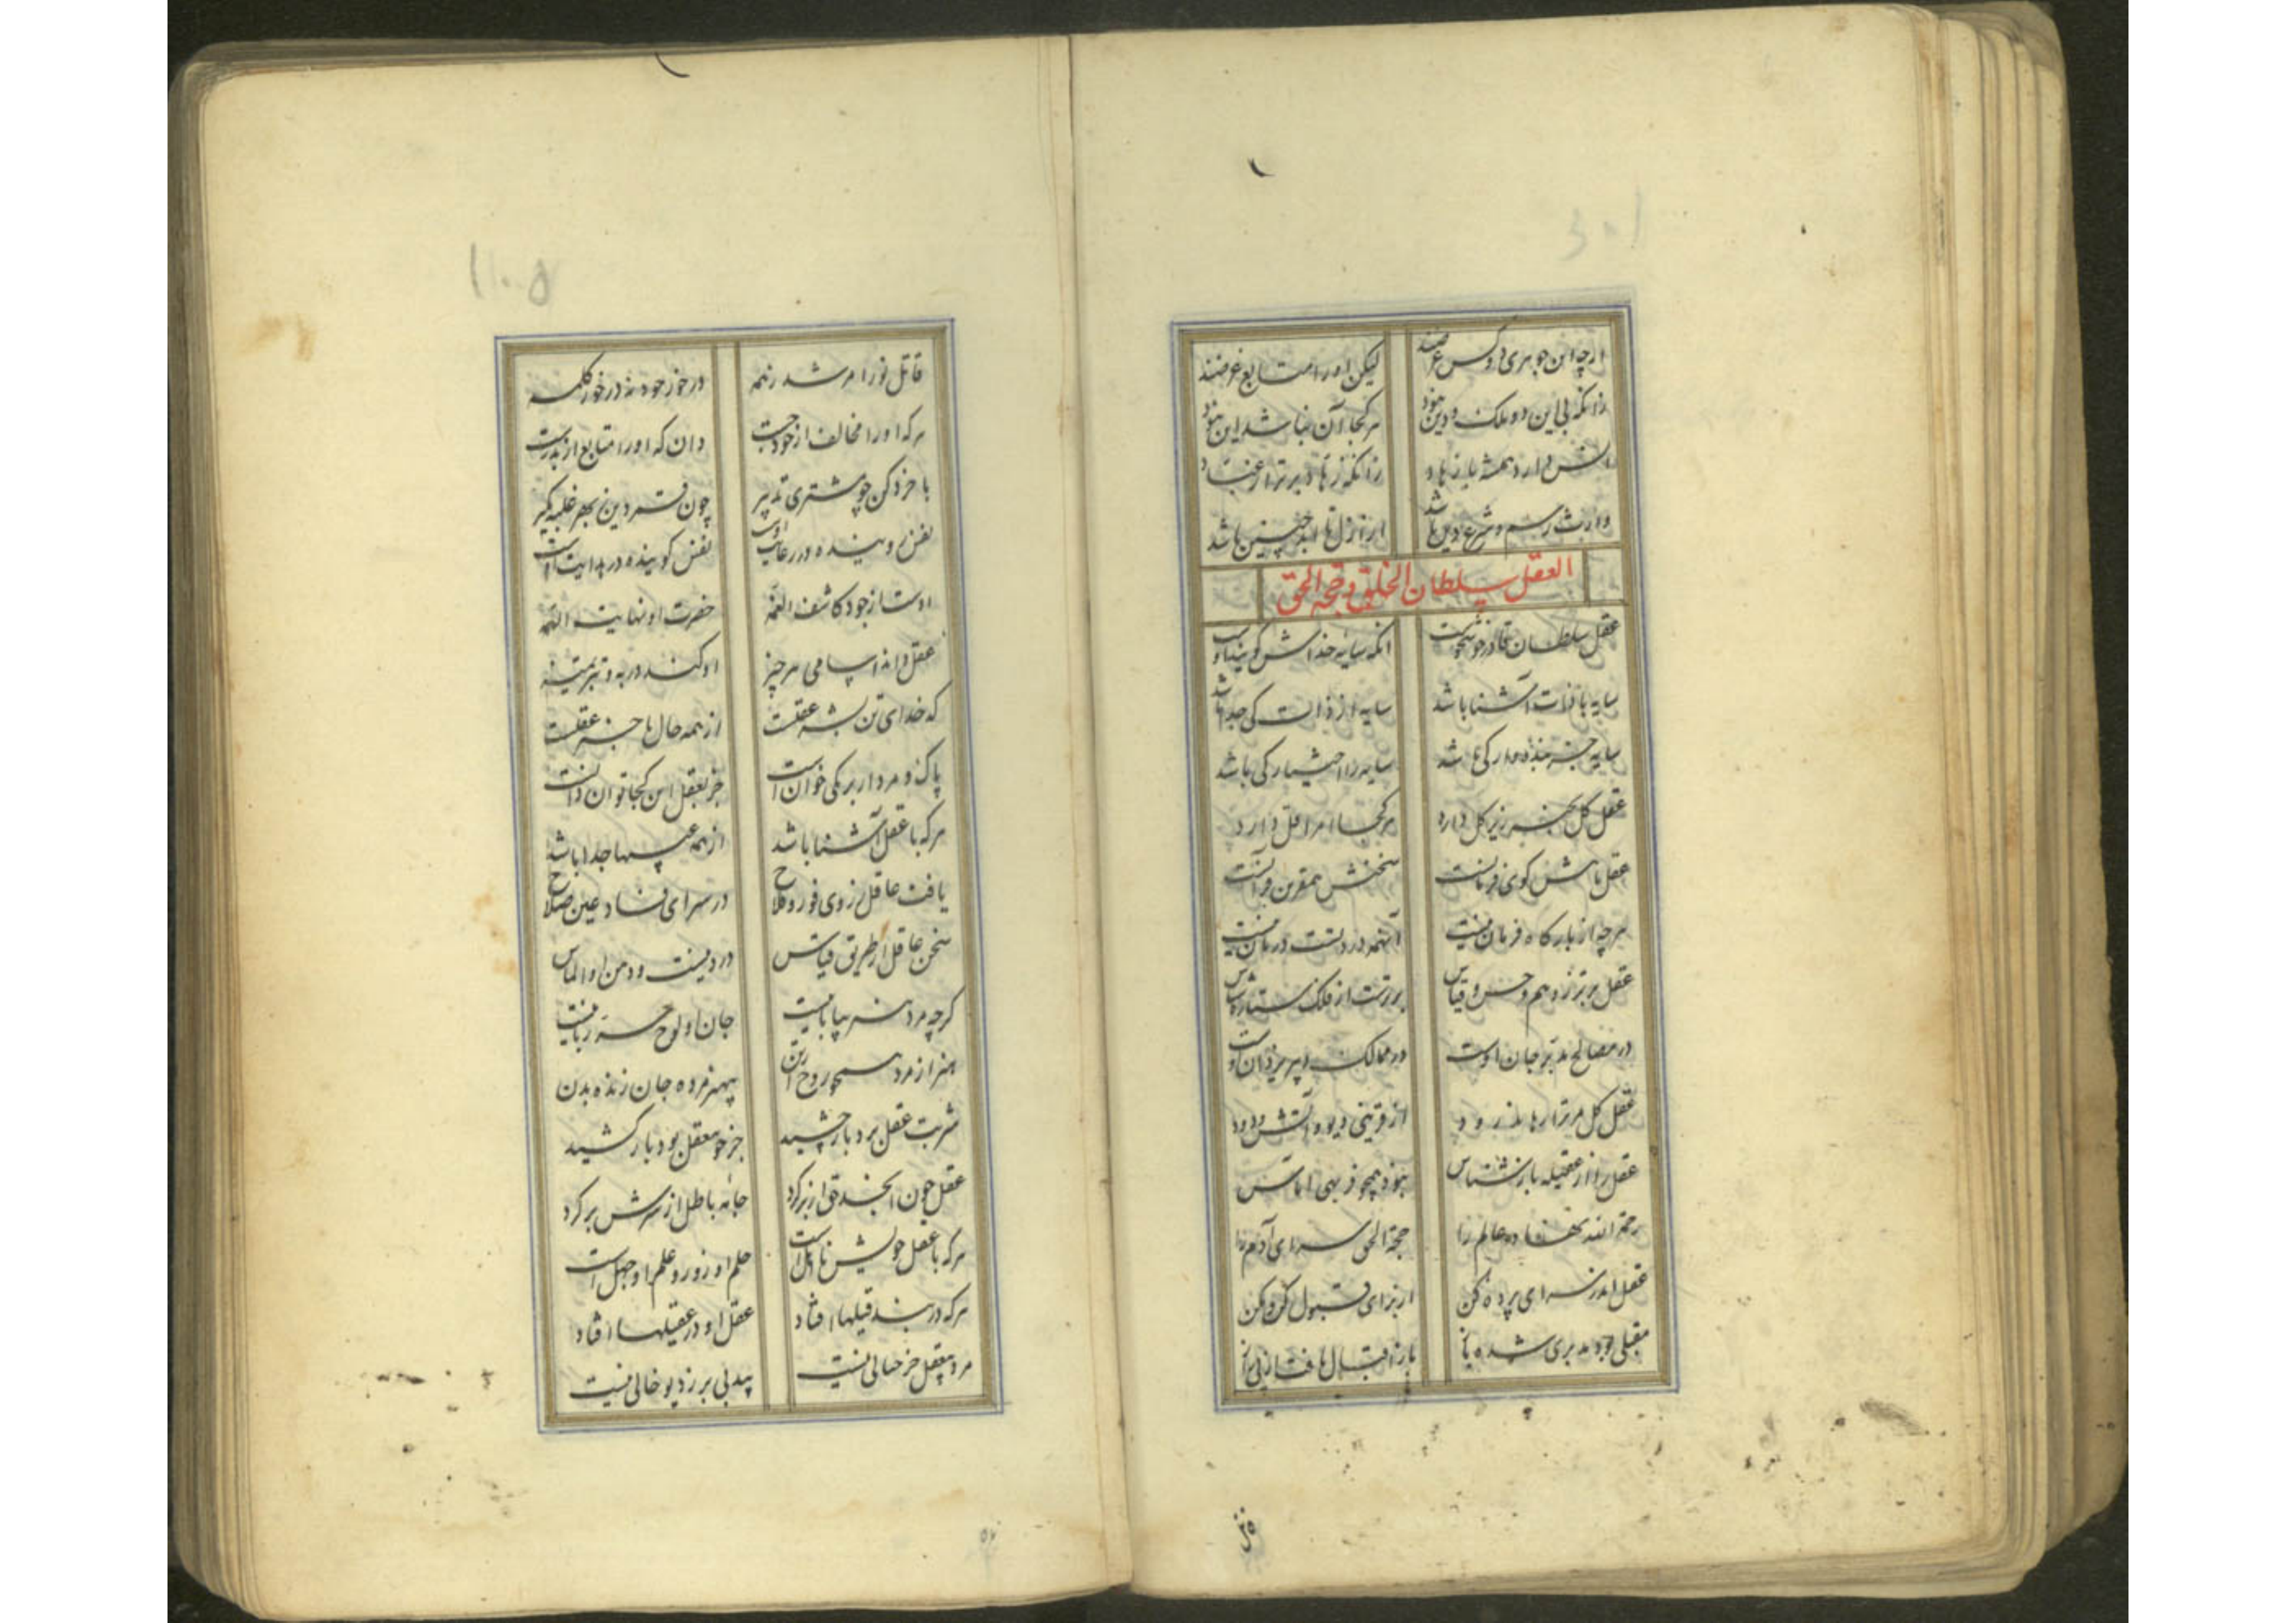 ارچه این جوهری و کس عرضند لیکن او را متابع غرضند
زانکه بی این دو ملک و دین نبود هر کجا آن نباشد این نبود
دارد همیشه با زهاد زانکه زهاد برتر از عباد
وارث رسم و شرع و دین باشد از ازل تا ابد چنین باشد
العقل سلطان الخلق و حجة الحق
عقل سلطان قادر خوشخوست آنکه سایه خداش گویند اوست
سایه با ذات آشنا باشد سایه از ذات کی جدا باشد
سایه جز بنده وار کی باشد سایه را اختیار کی باشد
عقل کل بخیر زیر کل دارد هر کجا امر قل دارد
عقل باش کوی فرمانست سخنش همقرین قرآنست
هرچه از بارگاه فرمان نیست آنهمه دردتست درمان نیست
عقل برتر ز وهم و حس و قیاس برترست از فلک ستاره شناس
در مصالح مدبر جان اوست در ممالک دبیر یزدان اوست
عقل کل مر ترا رهاند زود از قرینی دیو و آتش و دود
عقل را از عقیله باز شناس نبود همچو فربهی آماس
رحمة الله نهفته عالم را حجة الحق سرای آدم را
عقل اندر سرای پرده کن از برای قبول کرد مکن
مقبلی جو مدبری شده باز باز اقبالها
قاتل تو را مرشد زنهمه درخور جود نه درخور کلمه
هرکه او را مخالف از خودست دان که او را متابع از بدرست
با خرد کن چو مشتری تدبیر چون قمر دین بهر غلبه مگیر
نفس روینده در رعایت اوست نفس گوینده در هدایت اوست
اوست از جود کاشف الغمه حضرت او نهایت الهمه
عقل داند اسامی هر چیز او کند در بد و تبر تمییز
که خدای تن بشر عقلست از همه حال ها خبر عقلست
پاک و مردار بر یکی خوان است جز بعقل این کجا توان دانست
هرکه با عقل آشنا باشد از همه عیبها جدا باشد
یافت عاقل ز روی فوز و فلاح در سرای فساد عین صلاح
سخن عاقل از طریق قیاس در دیست و دهن او الماس
گرچه مرد سر بیابانیست جان او لوح سر ربانیست
هنر از مرد همچو روح از تن بی هنر مرده جان زنده بدن
شربت عقل بردبار چشید جز خر عقل بود بار کشید
عقل چون ابجد تو از بر کرد جامه باطل از سرش بر کرد
هرکه با عقل خویش نااهل است حلم او زور و علم او جهل است
هرکه در بند قیلها افتاد عقل او در عقیلها افتاد
مرد بیعقل جز خیالی نیست بیدلی بر ز دیو خالی نیست